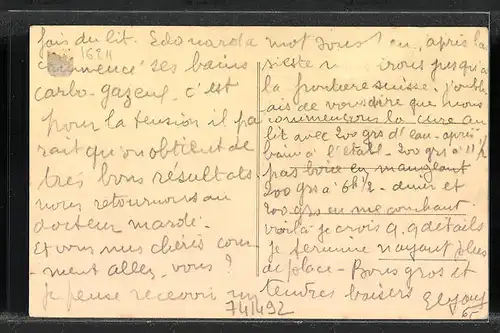 fais du lit. Edouard a
commencé ses bains
carbo-gazeux c'est
pour la tension il pa
rait qu'on obtient de
très bons résultats
nous retournons au
docteur mardi.
Et vous mes chéris com
-ment allez-vous?
je pense recevoir un
mot sous peu, après la
sieste nous irons jusqu'à
la frontière suisse. j'oubli
ais de vous dire que nous
commençons la cure au
lit avec 200 grs d'eau - après
bain à l'étabt. 200 grs à 11 1/2
pas boire en mangeant
200 grs à 6h 1/2 - diner et
200 grs en me couchant.
voilà je crois q.q. détails
je termine n'ayant plus
de place - Bons gros et
tendres baisers
1624
741492
65